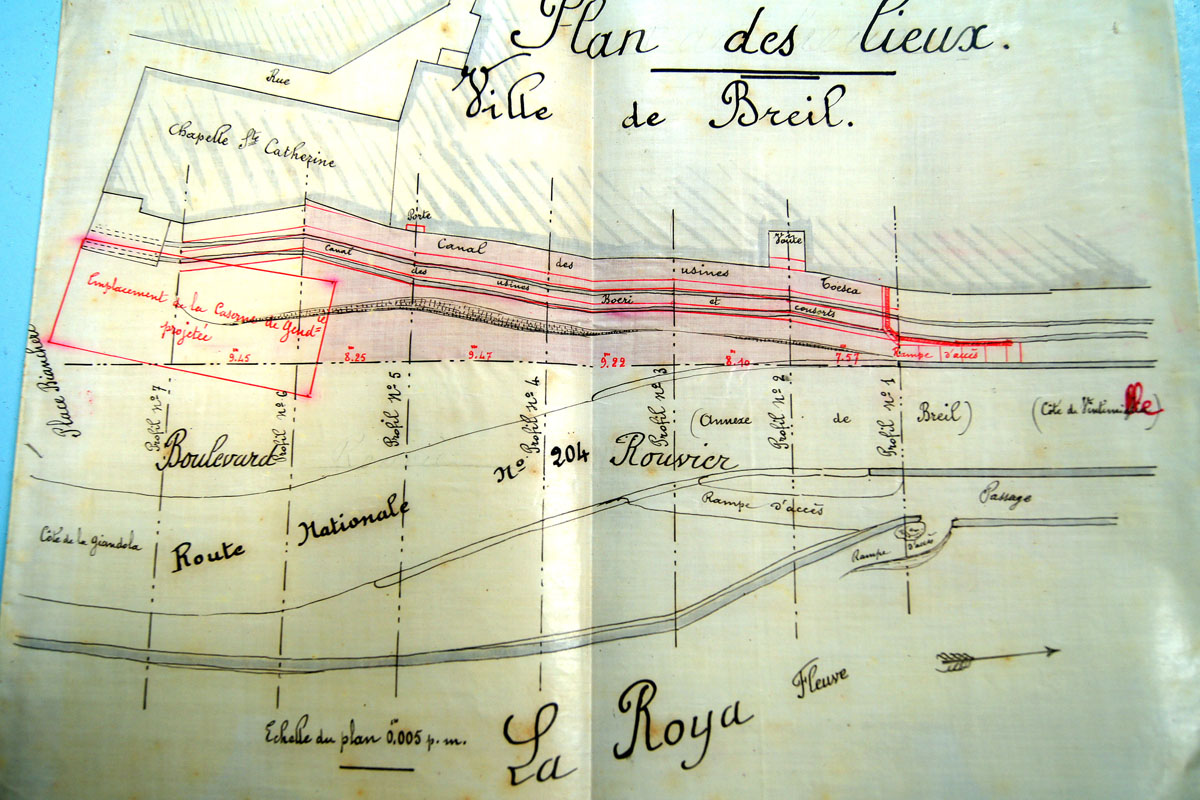 Plan des lieux.
Ville de Breil.
Rue
Chapelle Ste Catherine
Porte
Voute
Canal des usines Toesca
Canal des usines Boeri et consorts
Emplacement de la Caserne de Gendie
projetée
9.45 8.25 9.47 9.22 8.10 7.57
Rampe d'accès
Place Biancheri
Profil no 7
Profil no 6
Profil no 5
Profil no 4
Profil no 3
Profil no 2
Profil no 1
Boulevard Rouvier
(Annexe de Breil)
(Côté de Vintimille)
Route Nationale No 204
Côté de la Giandola
Rampe d'accès
Passage
Rampe d'accès
Fleuve
La Roya
Echelle du plan 0m,005 p. m.